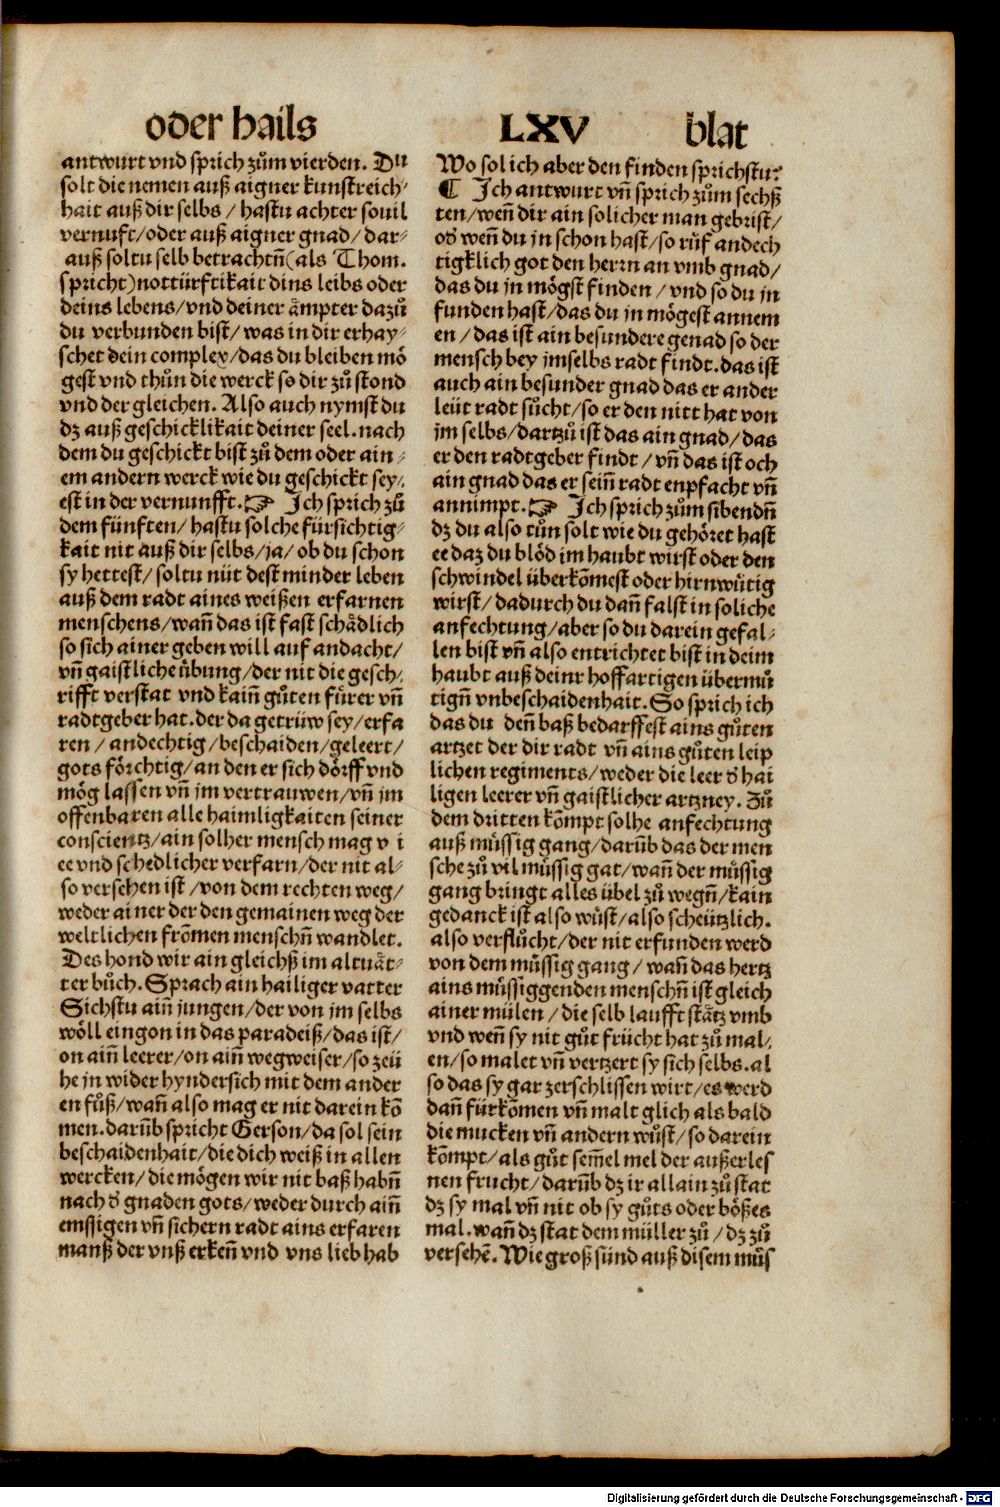 oder hails LXV blat
antwurt vnd sprich zům vierden. Du
solt die nemen auß aigner kunstreich⸗
hait auß dir selbs / hastu achter souil
vernuft/oder auß aigner gnad/ dar⸗
auß soltu selb betrachtn̄(als Thom.
spricht)nottürftikait dins leibs oder
deins lebens/vnd deiner ämpter dazů
du verbunden bist/ was in dir erhay⸗
schet dein complex/das du bleiben mö
gest vnd thůn die werck so dir zů stond
vnd der gleichen. Also auch nymst du
dz auß geschicklikait deiner seel. nach
dem du geschickt bist zů dem oder ain⸗
em andern werck wie du geschickt sey⸗
est in der vernunfft.☞ Ich sprich zů
dem fünften/ hastu solche fürsichtig⸗
kait nit auß dir selbs/ja/ ob du schon
sy hettest/ soltu nüt dest minder leben
auß dem radt aines weißen erfarnen
menschens/wañ das ist fast schädlich
so sich ainer geben will auf andacht/
vñ gaistliche übung/der nit die gesch⸗
rifft verstat vnd kaiñ gůten fürer vñ
radtgeber hat. der da getrüw sey/erfa
ren / andechtig/beschaiden/geleert/
gots förchtig/an den er sich dörff vnd
mög lassen vñ jm vertrauwen/vñ jm
offenbaren alle haimligkaiten seiner
conscientz/ain solher mensch mag v i
ee vnd schedlicher verfarn/der nit al⸗
so versehen ist /von dem rechten weg/
weder ainer der den gemainen weg der
weltlichen frōmen menschn̄ wandlet.
Des hond wir ain gleichß im altuät⸗
ter bůch. Sprach ain hailiger vatter
Sichstu aiñ jungen/der von jm selbs
wöll eingon in das paradeiß/das ist/
on aiñ leerer/on aiñ wegweiser/so zeü
he jn wider hyndersich mit dem ander
en fůß/wañ also mag er nit darein kō
men. darūb spricht Gerson/da sol sein
beschaidenhait/die dich weiß in allen
wercken/die mögen wir nit baß habn̄
nach d̄ gnaden gots/weder durch aiñ
emssigen vñ sichern radt ains erfaren
manß der vnß erkeñ vnd vns lieb hab
Wo sol ich aber den finden sprichstu?
¶ Ich antwurt vñ sprich zům sechß
ten/weñ dir ain solicher man gebrist/
od̄ weñ du jn schon hast/so růf andech
tigklich got den herrn an vmb gnad/
das du jn mögst finden / vnd so du jn
funden hast/das du jn mögest annem
en / das ist ain besundere genad so der
mensch bey jmselbs radt findt. das ist
auch ain besunder gnad das er ander
leüt radt sůcht/so er den nitt hat von
jm selbs/dartzů ist das ain gnad/das
er den radtgeber findt / vñ das ist och
ain gnad das er seiñ radt enpfacht vñ
annimpt.☞ Ich sprich zům sibendñ
dz du also tůn solt wie du gehöret hast
ee daz du blöd im haubt wirst oder den
schwindel überkōmest oder hirnwůtig
wirst/ dadurch du dañ falst in soliche
anfechtung/aber so du darein gefal⸗
len bist vñ also entrichtet bist in deim
haubt auß deinr hoffartigen übermů
tign̄ vnbeschaidenhait. So sprich ich
das du deñ baß bedarffest ains gůten
artzet der dir radt vñ ains gůten leip
lichen regiments/weder die leer d̄ hai
ligen leerer vñ gaistlicher artzney. Zů
dem dritten kōmpt solhe anfechtung
auß müssig gang/darūb das der men
sche zů vil müssig gat/wañ der müssig
gang bringt alles übel zů wegn̄/kain
gedanck ist also wůst/also scheützlich.
also verflůcht/der nit erfunden werd
von dem müssig gang/ wañ das hertz
ains müssiggenden menschn̄ ist gleich
ainer mülen / die selb laufft stätz vmb
vnd weñ sy nit gůt frücht hat zů mal⸗
en/so malet vñ vertzert sy sich selbs. al
so das sy gar zerschlissen wirt/es werd
dañ fürkōmen vñ malt glich als bald
die mucken vñ andern wůst/ so darein
kōmpt/als gůt sem̄el mel der außerles
nen frucht/ darūb dz ir allain zů stat
dz sy mal vñ nit ob sy gůts oder bößes
mal. wañ dz stat dem müller zů / dz zů
versehē. Wie groß sünd auß disem müs
Digitalisierung gefördert durch die Deutsche Forschungsgemeinschaft - DFG